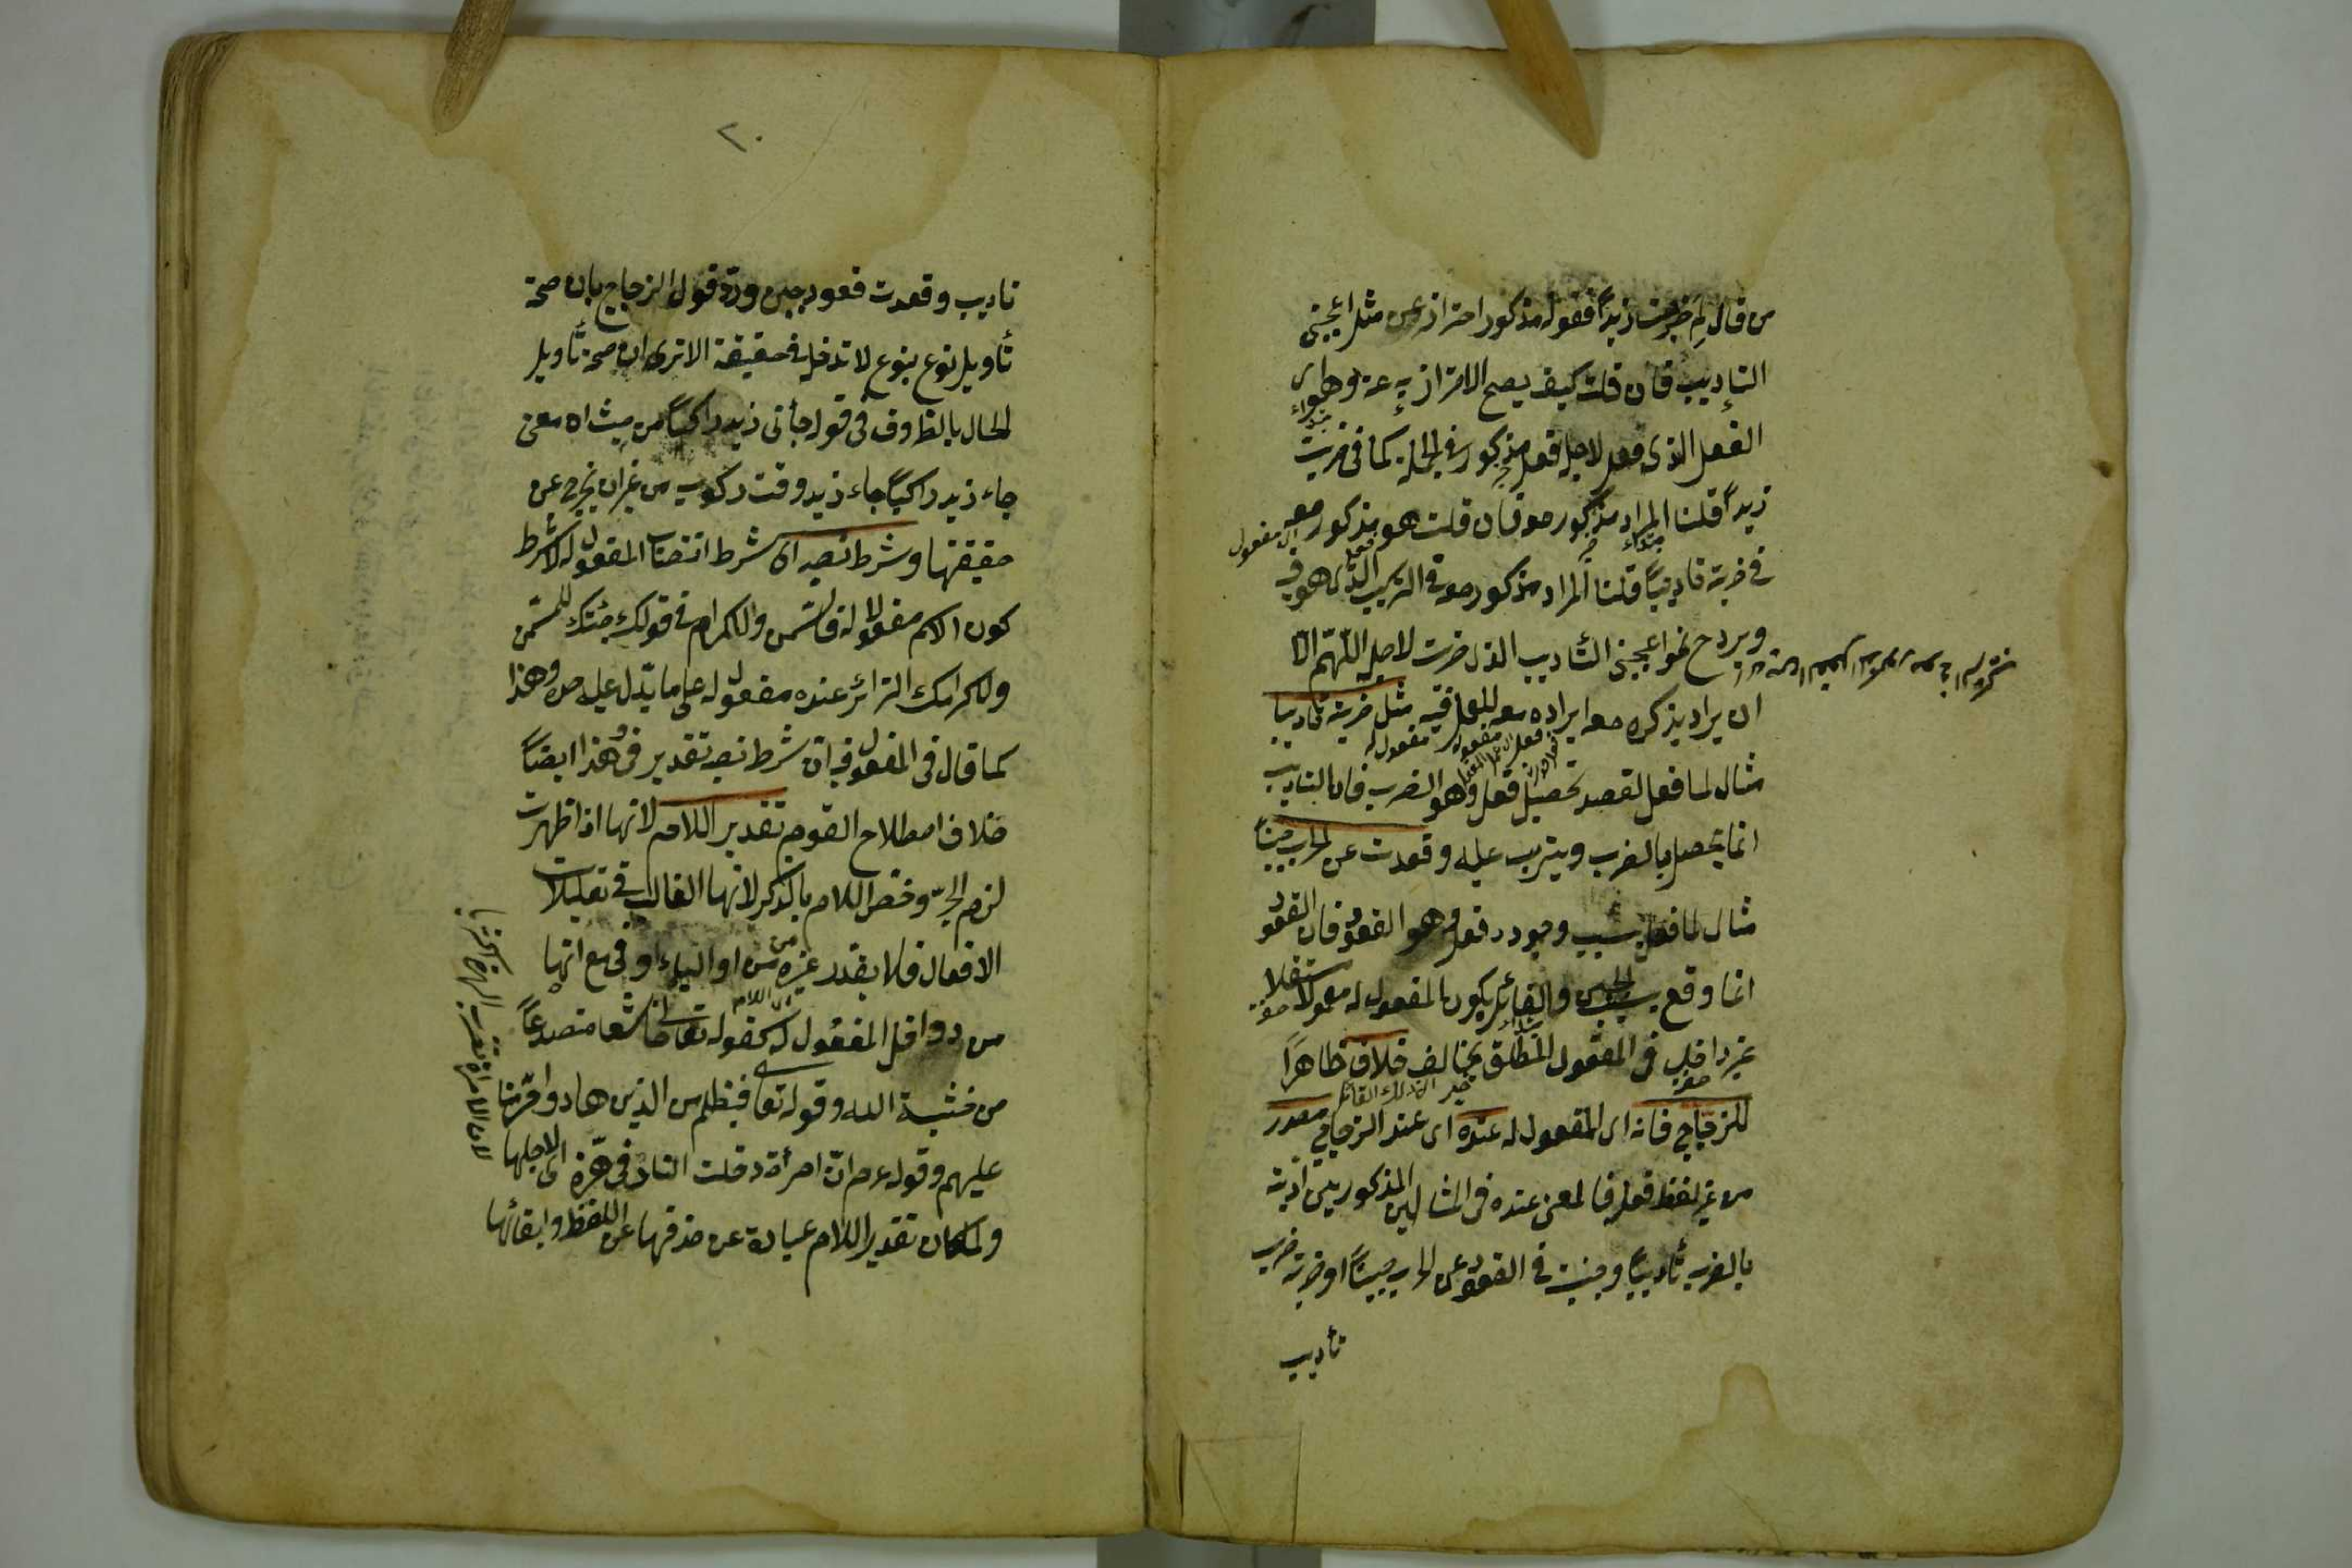 من قال لم ضربت زيداً فقوله مذكور احتراز عن مثل اعجبنى
التاديب فان قلت كيف يصح الاحتراز به عنه وهو اى
الفعل الذى فعل لاجله فعل مذكور فى الجملة كما فى ضربت
زيداً قلنا المراد مذكور معه فان قلت هو مذكور معه
فى ضربته تاديباً قلنا المراد مذكور معه فى التركيب الذى هو فيه
ويرد ح نحو اعجبنى التأديب الذى ضربت لاجله اللّهم الا
ان يراد بذكره معه ايراده معه للعمل فيه مثل ضربته تاديبا
مثال لما فعل لقصد تحصيل فعل وهو الضرب فان التاديب
انما يحصل بالضرب ويترتب عليه وقعدت عن الحرب جبناً
مثال لما فعل بسبب وجوده فعل وهو القعود فان القعود
انما وقع بسبب الجبن والقائل بكون المفعول له معمولا مستقلا
غير داخل فى المفعول المطلق يخالف خلافا ظاهراً
للزجاج فانه اى المفعول له عنده اى عند الزجاج مصدر
من غير لفظ فعله فالمعنى عنده فى المثالين المذكورين ادبته
بالضرب تأديباً وجبنت فى القعود عن الحرب جبناً او ضربته ضرب
تأديب
٢٠
تاديب وقعدت قعود جبن ورد قول الزجاج بان صحة
تأويل نوع بنوع لا تدخله فى حقيقته الا ترى ان صحة تأويل
الحال بالظروف فى قوله جأنى زيد راكباً من حيث ان معنى
جاء زيد راكباً جاء زيد وقت ركوبه من غير ان يخرج عن
حقيقتها وشرط نصبه اى شرط انتصاب المفعول له لا شرط
كون الاسم مفعولا له فالسمن والاكرام فى قولك جئتك للسمن
ولاكرامك الزائر عنده مفعول له على ما يدل عليه حده وهذا
كما قال فى المفعول فيه ان شرط نصبه تقدير فى وهذا ايضاً
خلاف اصطلاح القوم تقدير اللام لانها اذا ظهرت
لزم الجر وخص اللام بالذكر لانها الغالب فى تعليلات
الافعال فلا يقدر غيره من او الباء او فى مع انها
من دواخل المفعول له كقوله تعالى خاشعا متصدعاً
من خشية الله وقوله تعا فبظلم من الذين هادوا حرمنا
عليهم وقوله عم ان امرأة دخلت النار فى هرة اى لاجلها
ولما كان تقدير اللام عبارة عن حذفها عن اللفظ وابقائها